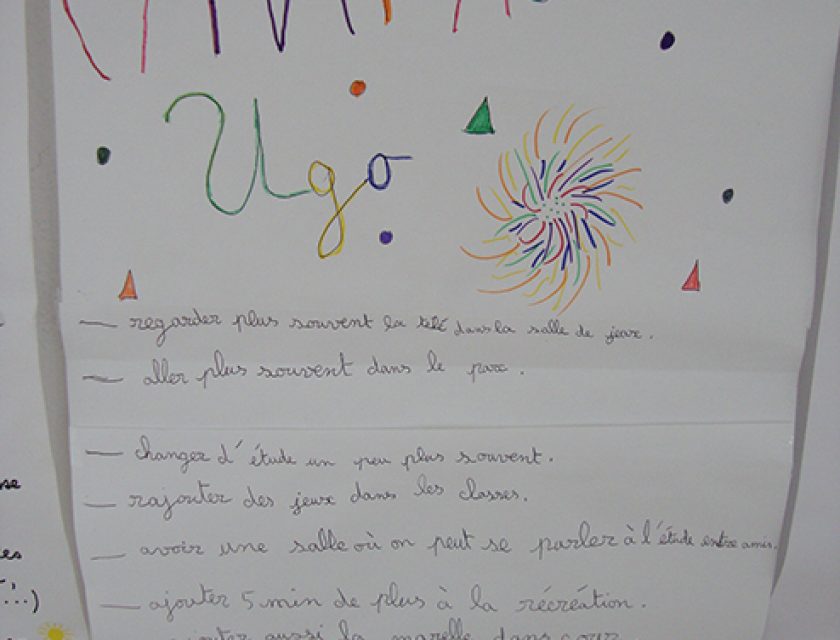 Ugo
— regarder plus souvent la télé dans la salle de jeux.
— aller plus souvent dans le parc.
— changer d'étude un peu plus souvent.
— rajouter des jeux dans les classes.
— avoir une salle où on peut se parler à l'étude entre amis.
— ajouter 5 min de plus à la récréation.
aussi la marelle dans cour